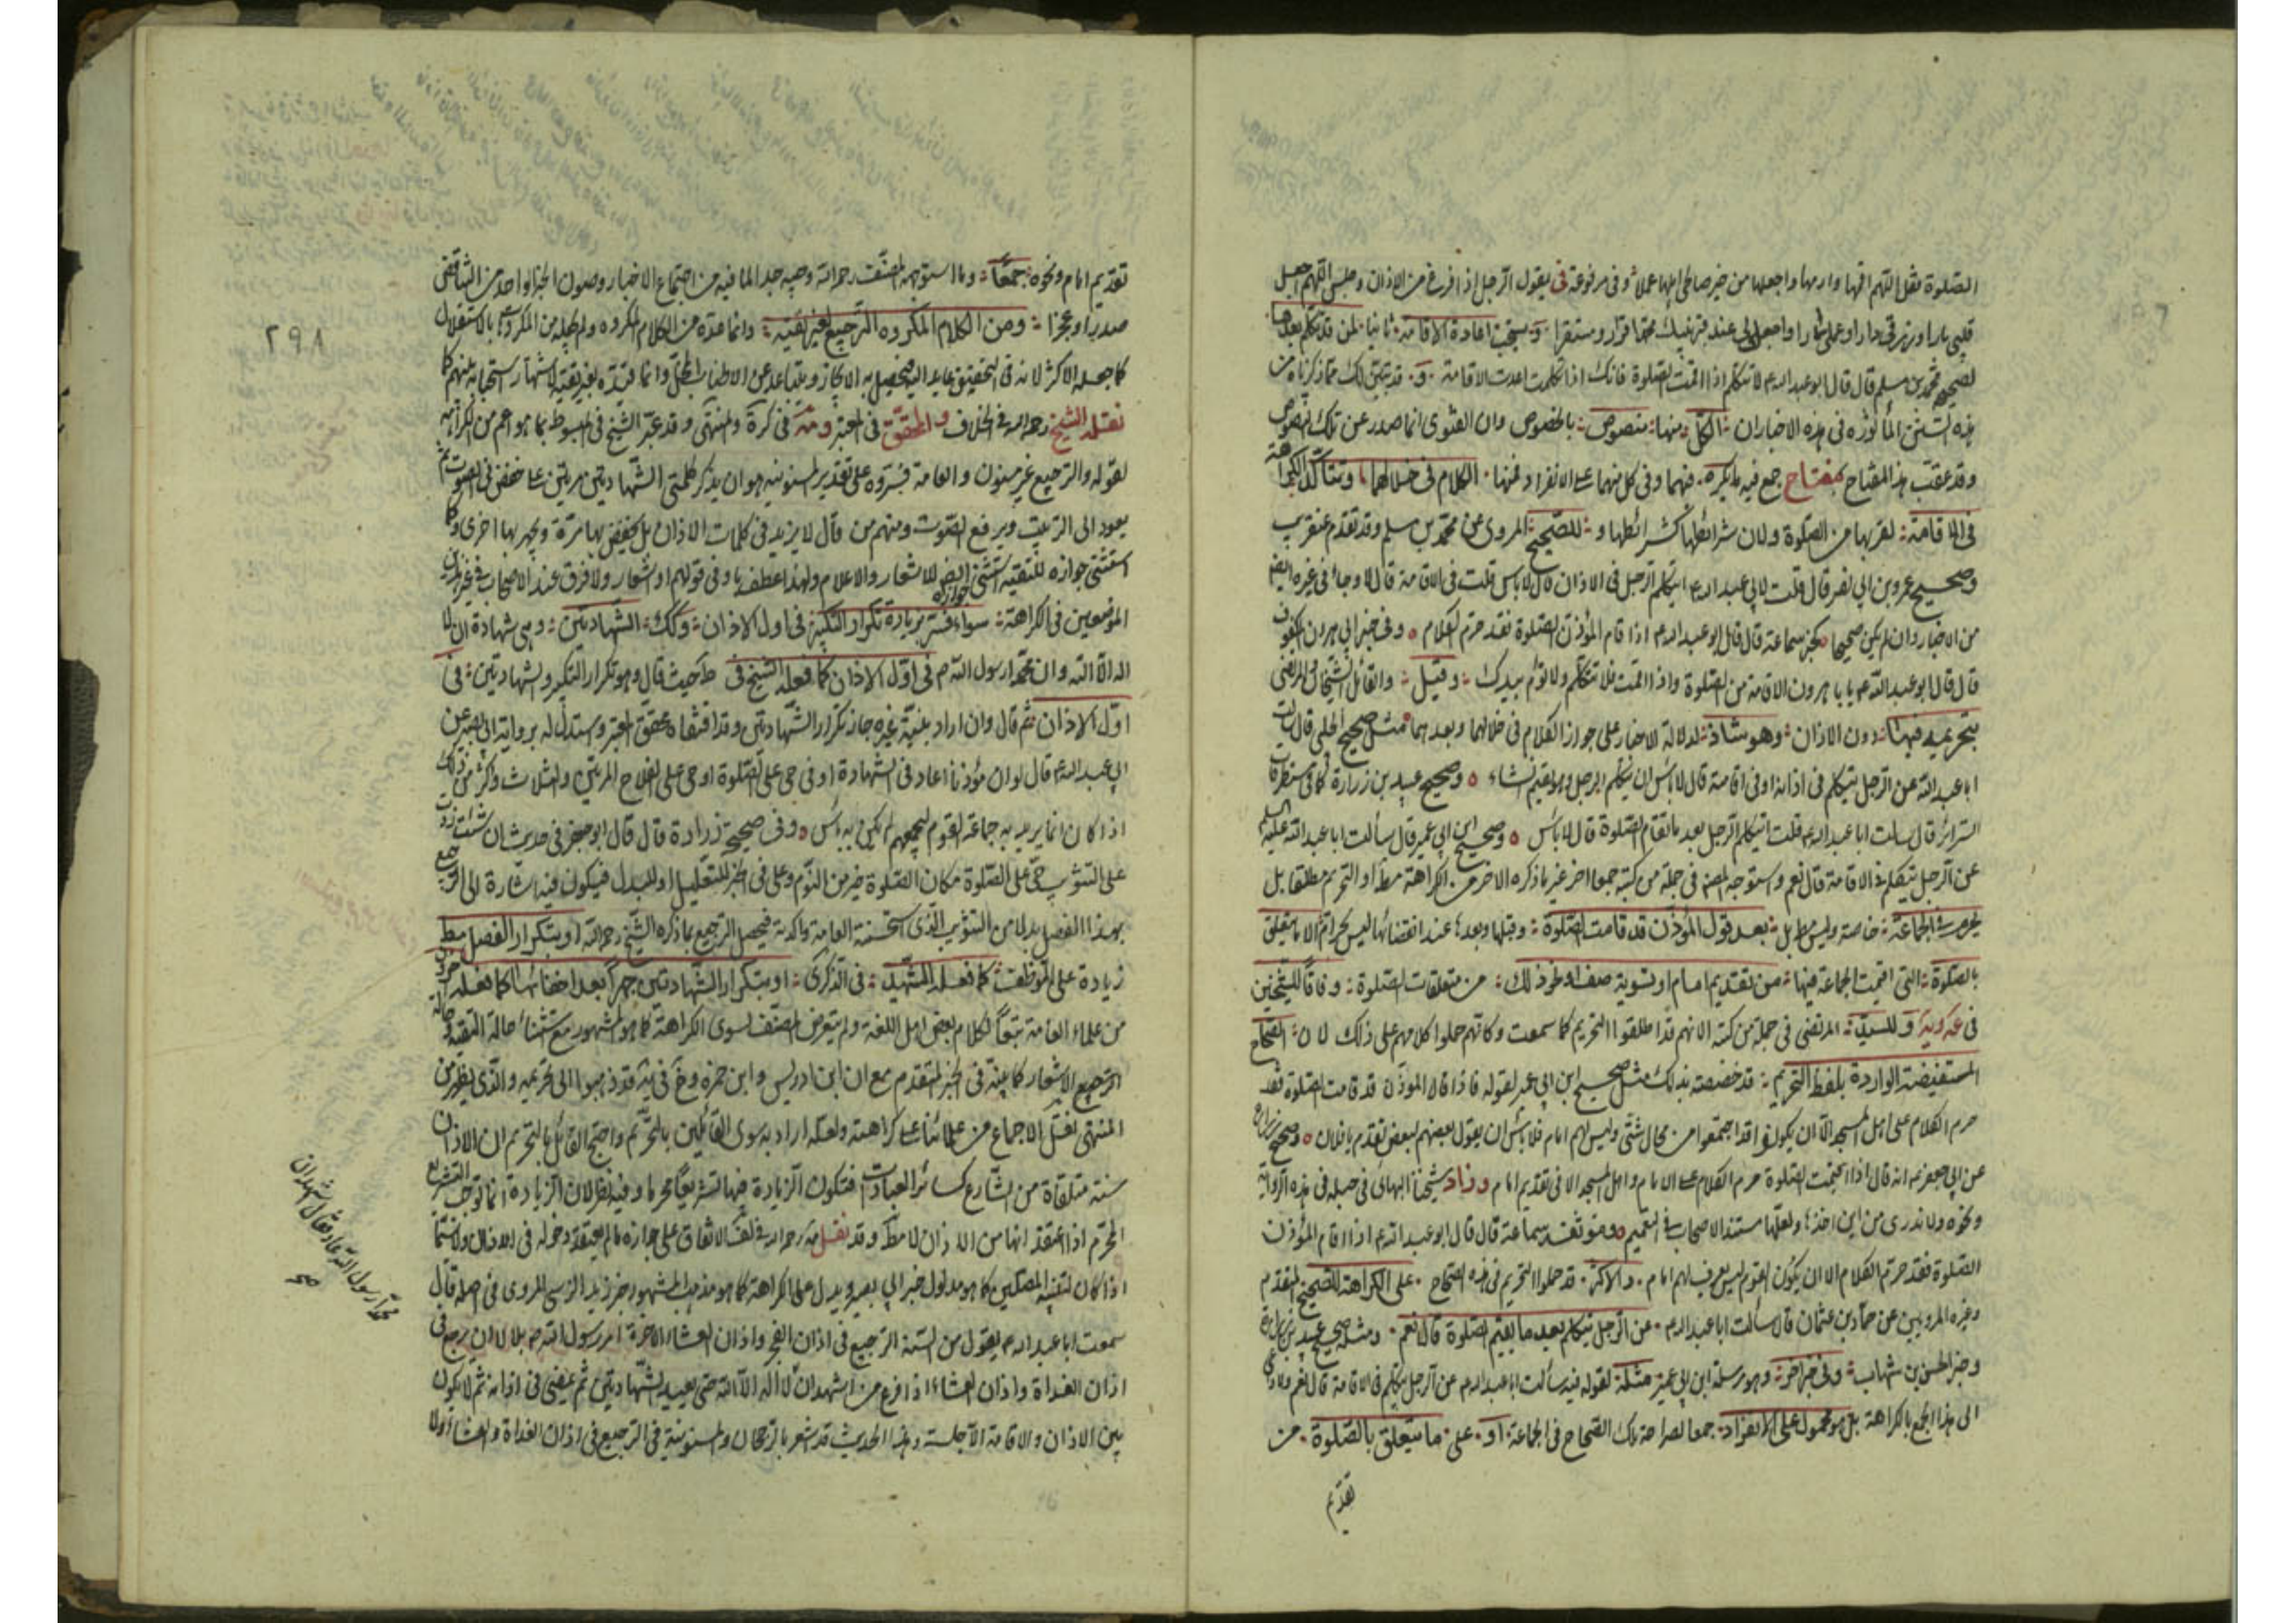 الصلوة مثل اللهم اقمها وادمها واجعلنا من خير صالحى اهلها عملا وفى مرفوعة فى يقول الرجل اذا فرغ من الاذان وجلس اللهم اجعل
قلبى بارا ورزقى دارا وعملى سارا واجعل لى عند قبر نبيك محمد قرارا ومستقرا و يستحب اعادة الاقامة ثانيا لمن قد تكلم بعدها
لصحيح محمد بن مسلم قال قال ابو عبد الله ع لا تتكلم اذا اقمت الصلوة فانك اذا تكلمت اعدت الاقامة و قد تبين لك مما ذكرناه من
هذه السنن المأثورة فى هذه الاخبار ان الكل منها منصوص بالخصوص وان الفتوى انما صدر عن تلك النصوص
وقد عقب هذا المفتاح بمفتاح جمع فيه ما يكره فيهما وفى كل منهما على الانفراد فمنها الكلام فى خلالهما وتتأكد الكراهة
فى الاقامة لقربها من الصلوة ولان شرائطها كشرائطها و للصحيح المروى عن محمد بن مسلم وقد تقدم عنقريب
وصحيح عمرو بن ابى نصر قال قلت لابى عبد الله ع ايتكلم الرجل فى الاذان قال لا باس قلت فى الاقامة قال لا وجاء فى غيره ايضا
من الاخبار وان لم يكن صحيحا كخبر سماعة قال قال ابو عبد الله ع اذا قام المؤذن للصلوة فقد حرم الكلام وفى خبر ابى هرون المكفوف
قال قال ابو عبد الله ع يا با هرون الاقامة من الصلوة واذا اقمت فلا تتكلم ولا تؤم بيدك وقيل والقائل الشيخان والمرتضى
بتحريمه فيها دون الاذان وهو شاذ لدلالة الاخبار على جواز الكلام فى خلالهما وبعدهما مثل صحيح الحلبى قال سالت
ابا عبد الله عن الرجل يتكلم فى اذانه او فى اقامته قال لا باس ان يتكلم الرجل وهو يقيم ان شاء وصحيح عبيد بن زرارة كما فى مستطرفات
السرائر قال سالت ابا عبد الله ع قلت ايتكلم الرجل بعد ما تقام الصلوة قال لا باس وصحيح ابن ابى عمير قال سألت ابا عبد الله عليه السلم
عن الرجل يتكلم فى الاقامة قال نعم واستوجه المصنف فى جملة من كتبه جمعا اخر غير ما ذكره الاخر من الكراهة مط او التحريم مطلقا بل
يحرم فى الجماعة خاصة وليس مط بل بعد قول المؤذن قد قامت الصلوة وقبلها وبعدها عند انقضائها ليس بحرام الا ما يتعلق
بالصلوة التى اقيمت الجماعة فيها من تقديم امام او تسوية صف او نحو ذلك من متعلقات الصلوة وفاقا للشيخين
فى عه ويه و للسيد المرتضى فى جملة من كتبه الا انهم قد اطلقوا التحريم كما سمعت وكانهم حملوا كلامهم على ذلك لان الصحاح
المستفيضة الواردة بلفظ التحريم قد خصصته بذلك مثل صحيح ابن ابى عمير لقوله فاذا قال المؤذن قد قامت الصلوة فقد
حرم الكلام على اهل المسجد الا ان يكونوا قد اجتمعوا من محال شتى وليس لهم امام فلا باس ان يقول بعضهم لبعض تقدم يا فلان وصحيح زرارة
عن ابى جعفر ع انه قال اذا اقيمت الصلوة حرم الكلام على الامام واهل المسجد الا فى تقديم امام وزاد شيخنا البهائى فى حبله فى هذه الرواية
ونحوه ولا ندرى من اين اخذه ولعلها مستند الاصحاب فى التعميم وموثقة سماعة قال قال ابو عبد الله ع اذا اقام المؤذن
الصلوة فقد حرم الكلام الا ان يكون القوم ليس يعرف لهم امام والاكثر قد حملوا التحريم فى هذه الصحاح على الكراهة للصحيح المتقدم
وغيره المرويين عن حماد بن عثمان قال سألت ابا عبد الله ع عن الرجل يتكلم بعد ما يقيم الصلوة قال نعم ومثله صحيح عبيد بن زرارة
وخبر الحسن بن شهاب وفى خبر اخر وهو مرسلة ابن ابى عمير مثله لقوله فيه سألت ابا عبد الله ع عن الرجل يتكلم فى الاقامة قال نعم ولا داعى
الى هذا الجمع بالكراهة بل هو محمول على الانفراد جمعا لصراحة تلك الصحاح فى الجماعة او على ما يتعلق بالصلوة من
تقديم
٢٩٨
تقديم امام ونحوه جمعا وما استوجهه المصنف رحمه الله وجيه جدا لما فيه من اجتماع الاخبار وصون الخبر الواحد من التناقض
صدرا وعجزا ومن الكلام المكروه الترجيع لغير تقية وانما عده من الكلام المكروه ولم يجعله من المكروهات بالاستقلال
كما جعله الاكثر لانه فى التحقيق عايد اليه فيحصل به الايجاز ويتباعد عن الاطناب المخل وانما قيده بغير تقية لاشتهار استحبابه بينهم كما
نقله الشيخ رحمه الله فى الخلاف والمحقق فى المعتبر ومه فى كرة والمنتهى وقد عبر الشيخ فى المبسوط بما هو اعم من الكراهة
لقوله والترجيع غير مسنون والعامة فسروه على تقدير المسنونية هو ان يذكر كلمتى الشهادتين مرتين على خفض فى الصوت ثم
يعود الى الترتيب ويرفع الصوت ومنهم من قال لا يزيد فى كلمات الاذان بل يخفض بها مرة ويجهر بها اخرى وكما
استثنى جوازه للتقية استثنى ايضا جوازه للاشعار والاعلام ولهذا عطف باو فى قولهم او اشعار ولا فرق عند الاصحاب فى غير هذين
الموضعين فى الكراهة سواء فسر بزيادة تكرار التكبير فى اول الاذان وكك الشهادتين وهى شهادة ان لا
اله الا الله وان محمدا رسول الله ص فى اول الاذان كما فعله الشيخ فى ط حيث قال وهو تكرار التكبير والشهادتين فى
اول الاذان ثم قال وان اراد بنيته غيره جاز تكرار الشهادتين وقد اقتفاه محقق المعتبر واستدل له برواية ابى بصير عن
ابى عبد الله ع قال لو ان مؤذنا اعاد فى الشهادة او فى حى على الصلوة او حى على الفلاح المرتين والثلاث واكثر من ذلك
اذا كان انما يريد به جماعة القوم ليجمعهم لم يكن به باس وفى صحيح زرارة قال قال ابو جعفر فى حديث ان شئت زدت
على التثويب حى على الصلوة مكان الصلوة خير من النوم وعلى فى الخبر للتعليل او للبدل فيكون فيه اشارة الى الترجيع
بهذا الفصل بدلا من التثويب الذى استحسنته العامة واكدته فيحصل الترجيع بما ذكره الشيخ رحمه الله او بتكرار الفصل مط
زيادة على الموظف كما فعله الشهيد فى الذكرى او بتكرار الشهادتين جهرا بعد اخفائها كما فعله اخرون
من علماء العامة تبعا لكلام بعض اهل اللغة ولم يتعرض المصنف لسوى الكراهة كما هو المشهور مع استثناء حالة التقية وحالة
الترجيع للاشعار كما بينه فى الخبر المتقدم مع ان ابن ادريس وابن حمزة وخ فى يه قد ذهبوا الى تحريمه والذى يظهر من
المنتهى نقل الاجماع من علمائنا على كراهته ولعله اراد به سوى القائلين بالتحريم واحتج القائل بالتحريم ان الاذان
سنة متلقاة من الشارع كسائر العبادات فتكون الزيادة فيها تشريعا محرما وفيه نظر لان الزيادة انما توجب التشريع
المحرم اذا اعتقد انها من الاذان لا مط وقد نقل مه رحمه الله فى لف الاتفاق على جوازه ما لم يعتقد دخوله فى الاذان ولا سيما
اذا كان لتنبيه المصلين كما هو مدلول خبر ابى بصير ويدل على الكراهة كما هو مذهب المشهور خبر زيد النرسى المروى فى اصله قال
سمعت ابا عبد الله ع يقول من السنة الترجيع فى اذان الفجر واذان العشاء الاخرة امر رسول الله ص بلالا ان يرجع فى
اذان الغداة واذان العشاء اذا فرغ من اشهد ان لا اله الا الله حتى يعيد الشهادتين ثم يمضى فى اذانه ثم لا يكون
بين الاذان والاقامة الا جلسة وهذا الحديث قد شعر بالرجحان والمسنونية فى الترجيع فى اذان الغداة والعشاء اولا
محمدا رسول الله عاد فقال اشهد ان
صح